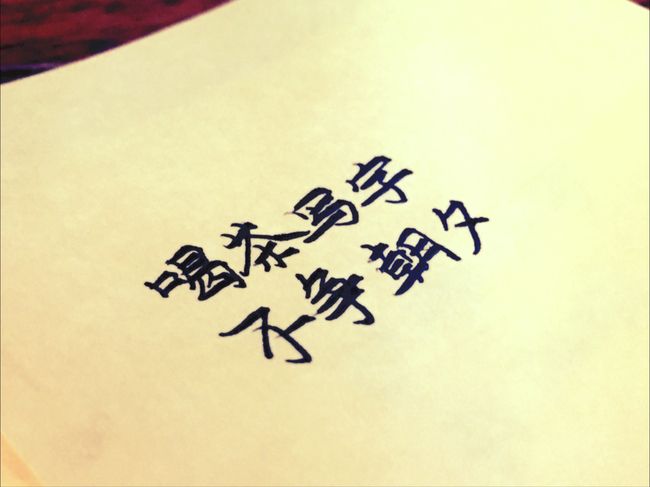 喝茶写字
不争朝夕